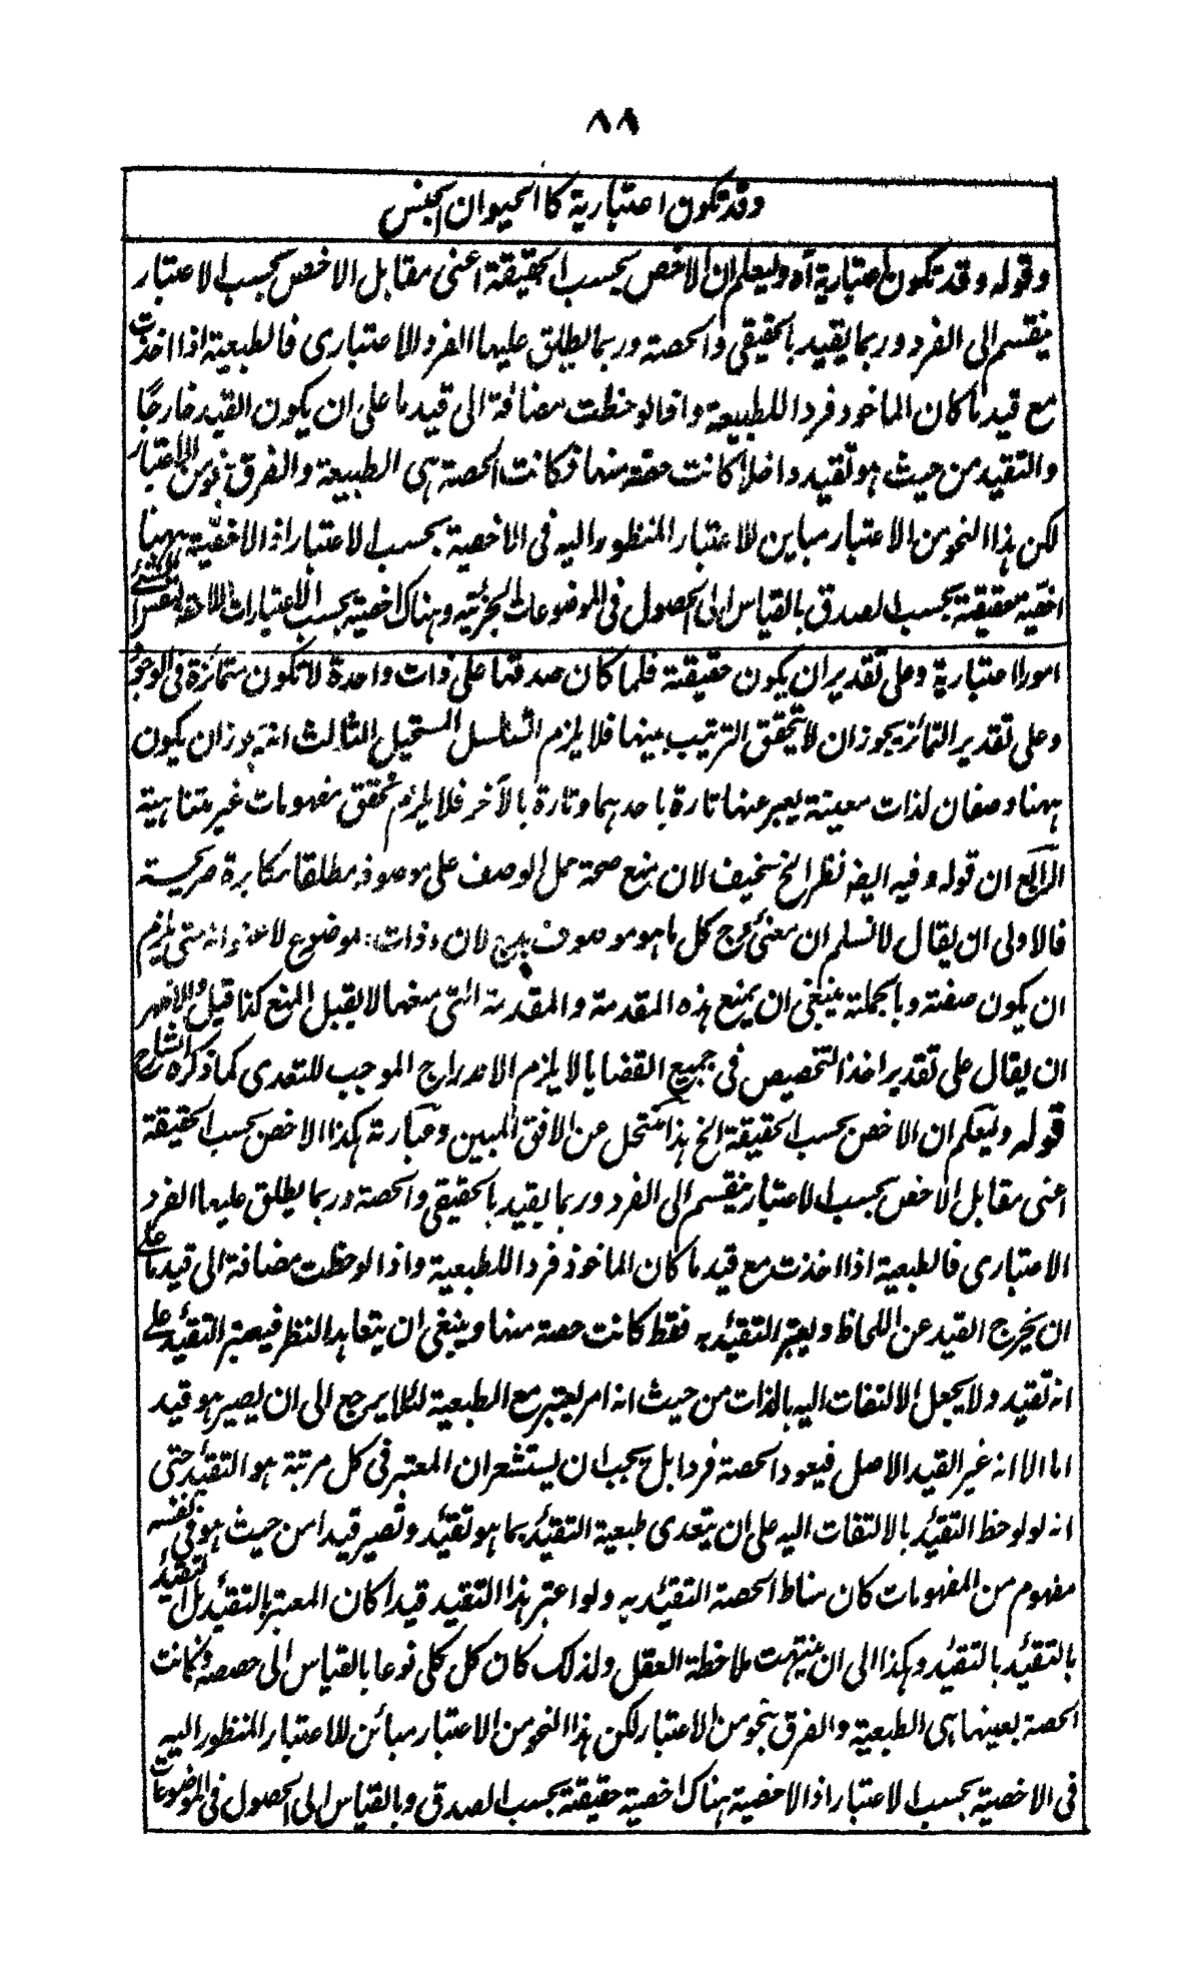 ٨٨
وقد تكون اعتبارية كالحيوان الجنس
وقوله وقد تكون اعتبارية آه وليعلم ان الاخص بحسب الحقيقة اعنى مقابل الاخص بحسب الاعتبار
ينقسم الى الفرد وربما يقيد بالحقيقى والحصة وربما يطلق عليها الفرد الاعتبارى فالطبيعة اذا اخذت
مع قيد ما كان الماخوذ فردا للطبيعة واذا لوحظت مضافة الى قيد ما على ان يكون القيد خارجًا
والتقيد من حيث هو تقيد داخلا كانت حصة منها فكانت الحصة هى الطبيعة والفرق بنحو من الاعتبار
لكن هذا النحو من الاعتبار مباين للاعتبار المنظور اليه فى الاخصية بحسب الاعتبار اذ الاخصية ههنا
اخصية حقيقة بحسب الصدق بالقياس الى الحصول فى الموضوعات الجزئية وهناك اخصية بحسب الاعتبارات اللاحقة لنفس
امورا اعتبارية وعلى تقدير ان يكون حقيقة فلما كان صدقها على ذات واحدة لا تكون متمائزة فى الوجود
وعلى تقدير التمائز يجوز ان لا يتحقق الترتيب بينها فلا يلزم التسلسل المستحيل الثالث انه يجوز ان يكون
ههنا وصفان لذات معينة يعبر عنها تارة باحدهما وتارة بالآخر فلا يلزم تحقق مفهومات غير متناهية
الرابع ان قوله وفيه ايضا نظر الخ سخيف لان منع صحة حمل الوصف على موصوفه مطلقا مكابرة صريحة
فالاولى ان يقال لا نسلم ان معنى كل ج كل ما هو موصوف بج لان ذات الموضوع لا عنوانه متى يلزم
ان يكون صفة وبالجملة ينبغى ان يمنع هذه المقدمة والمقدمة التى منعها لا يقبل المنع كذا قيل والاظهر
ان يقال على تقدير اخذ التخصيص فى جميع القضايا لا يلزم الاندراج الموجب للتعدى كما ذكره الشارح
قوله وليعلم ان الاخص بحسب الحقيقة الخ هذا منتحل عن الافق المبين وعبارته هكذا الاخص بحسب الحقيقة
اعنى مقابل الاخص بحسب الاعتبار ينقسم الى الفرد وربما يقيد بالحقيقى والحصة وربما يطلق عليها الفرد
الاعتبارى فالطبيعة اذا اخذت مع قيد ما كان الماخوذ فردا للطبيعة واذا لوحظت مضافة الى قيد ما على
ان يخرج القيد عن اللحاظ ويعتبر التقيد به فقط كانت حصة منها وينبغى ان يتعاهد النظر فيعتبر التقيد على
انه تقيد ولا يجعل الالتفات اليه بالذات من حيث انه امر يعتبر مع الطبيعة لئلا يرجع الى ان يصير هو قيد
اما الا انه غير القيد الاصل فيعود الحصة فردا بل يجب ان يستشعر ان المعتبر فى كل مرتبة هو التقيد حتى
انه لو لوحظ التقيد بالالتفات اليه على ان يتعدى طبيعة التقيد بما هو تقيد وتصير قيدا من حيث هو فى نفسه
مفهوم من المفهومات كان مناط الحصة التقيد به ولو اعتبر هذا التقيد قيدا كان المعتبر التقيد بل التقيد
بالتقيد بالتقيد وهكذا الى ان ينتهى ملاحظة العقل ولذلك كان كل كلى نوعا بالقياس الى حصصه وكانت
الحصة بعينها هى الطبيعة والفرق بنحو من الاعتبار لكن هذا النحو من الاعتبار مبائن للاعتبار المنظور اليه
فى الاخصية بحسب الاعتبار اذ الاخصية هناك اخصية حقيقة بحسب الصدق وبالقياس الى الحصول فى الموضوعات